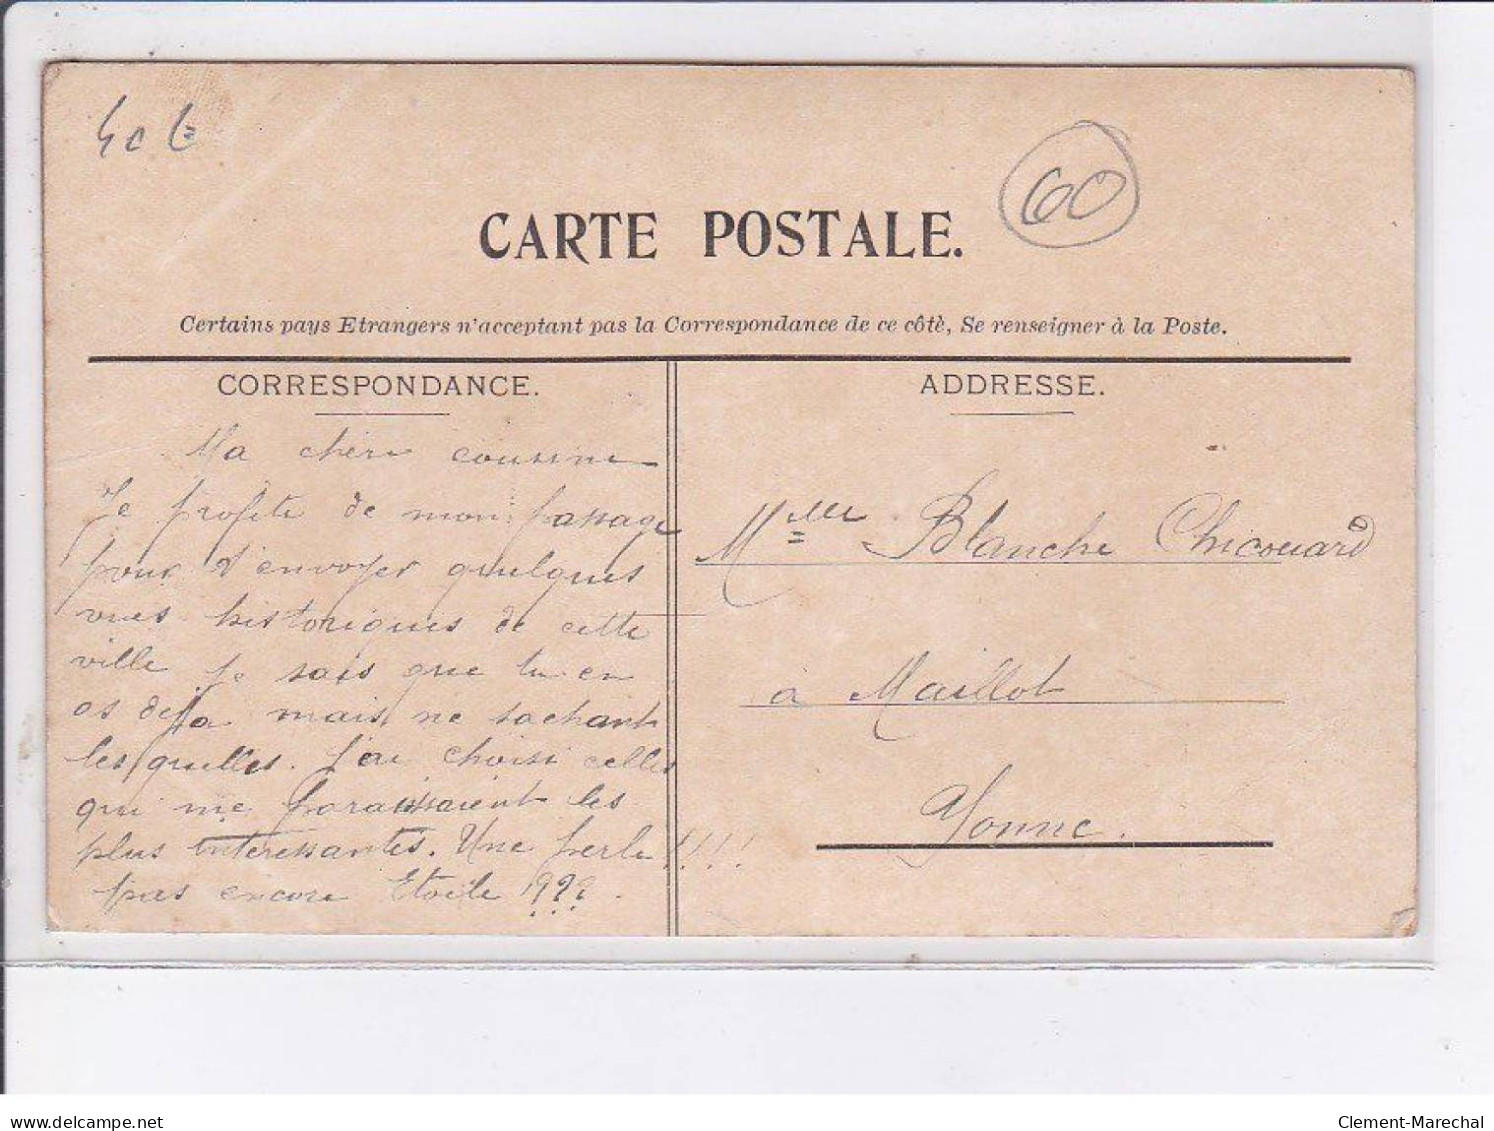 60
CARTE POSTALE.
Certains pays Etrangers n'acceptant pas la Correspondance de ce côtè, Se renseigner à la Poste.
CORRESPONDANCE.
Ma chère cousine
Je profite de mon passage
pour t'envoyer quelques
vues historiques de cette
ville je sais que tu en
as deja mais ne sachant
lesquelles. J'ai choisi celles
qui me paraissaient les
plus interessantes. Une perle !!!!
pas encore Etoile ???.
ADDRESSE.
Mlle Blanche Chicouard
à Maillot
Yonne.
delcampe.net
Clement-Marechal